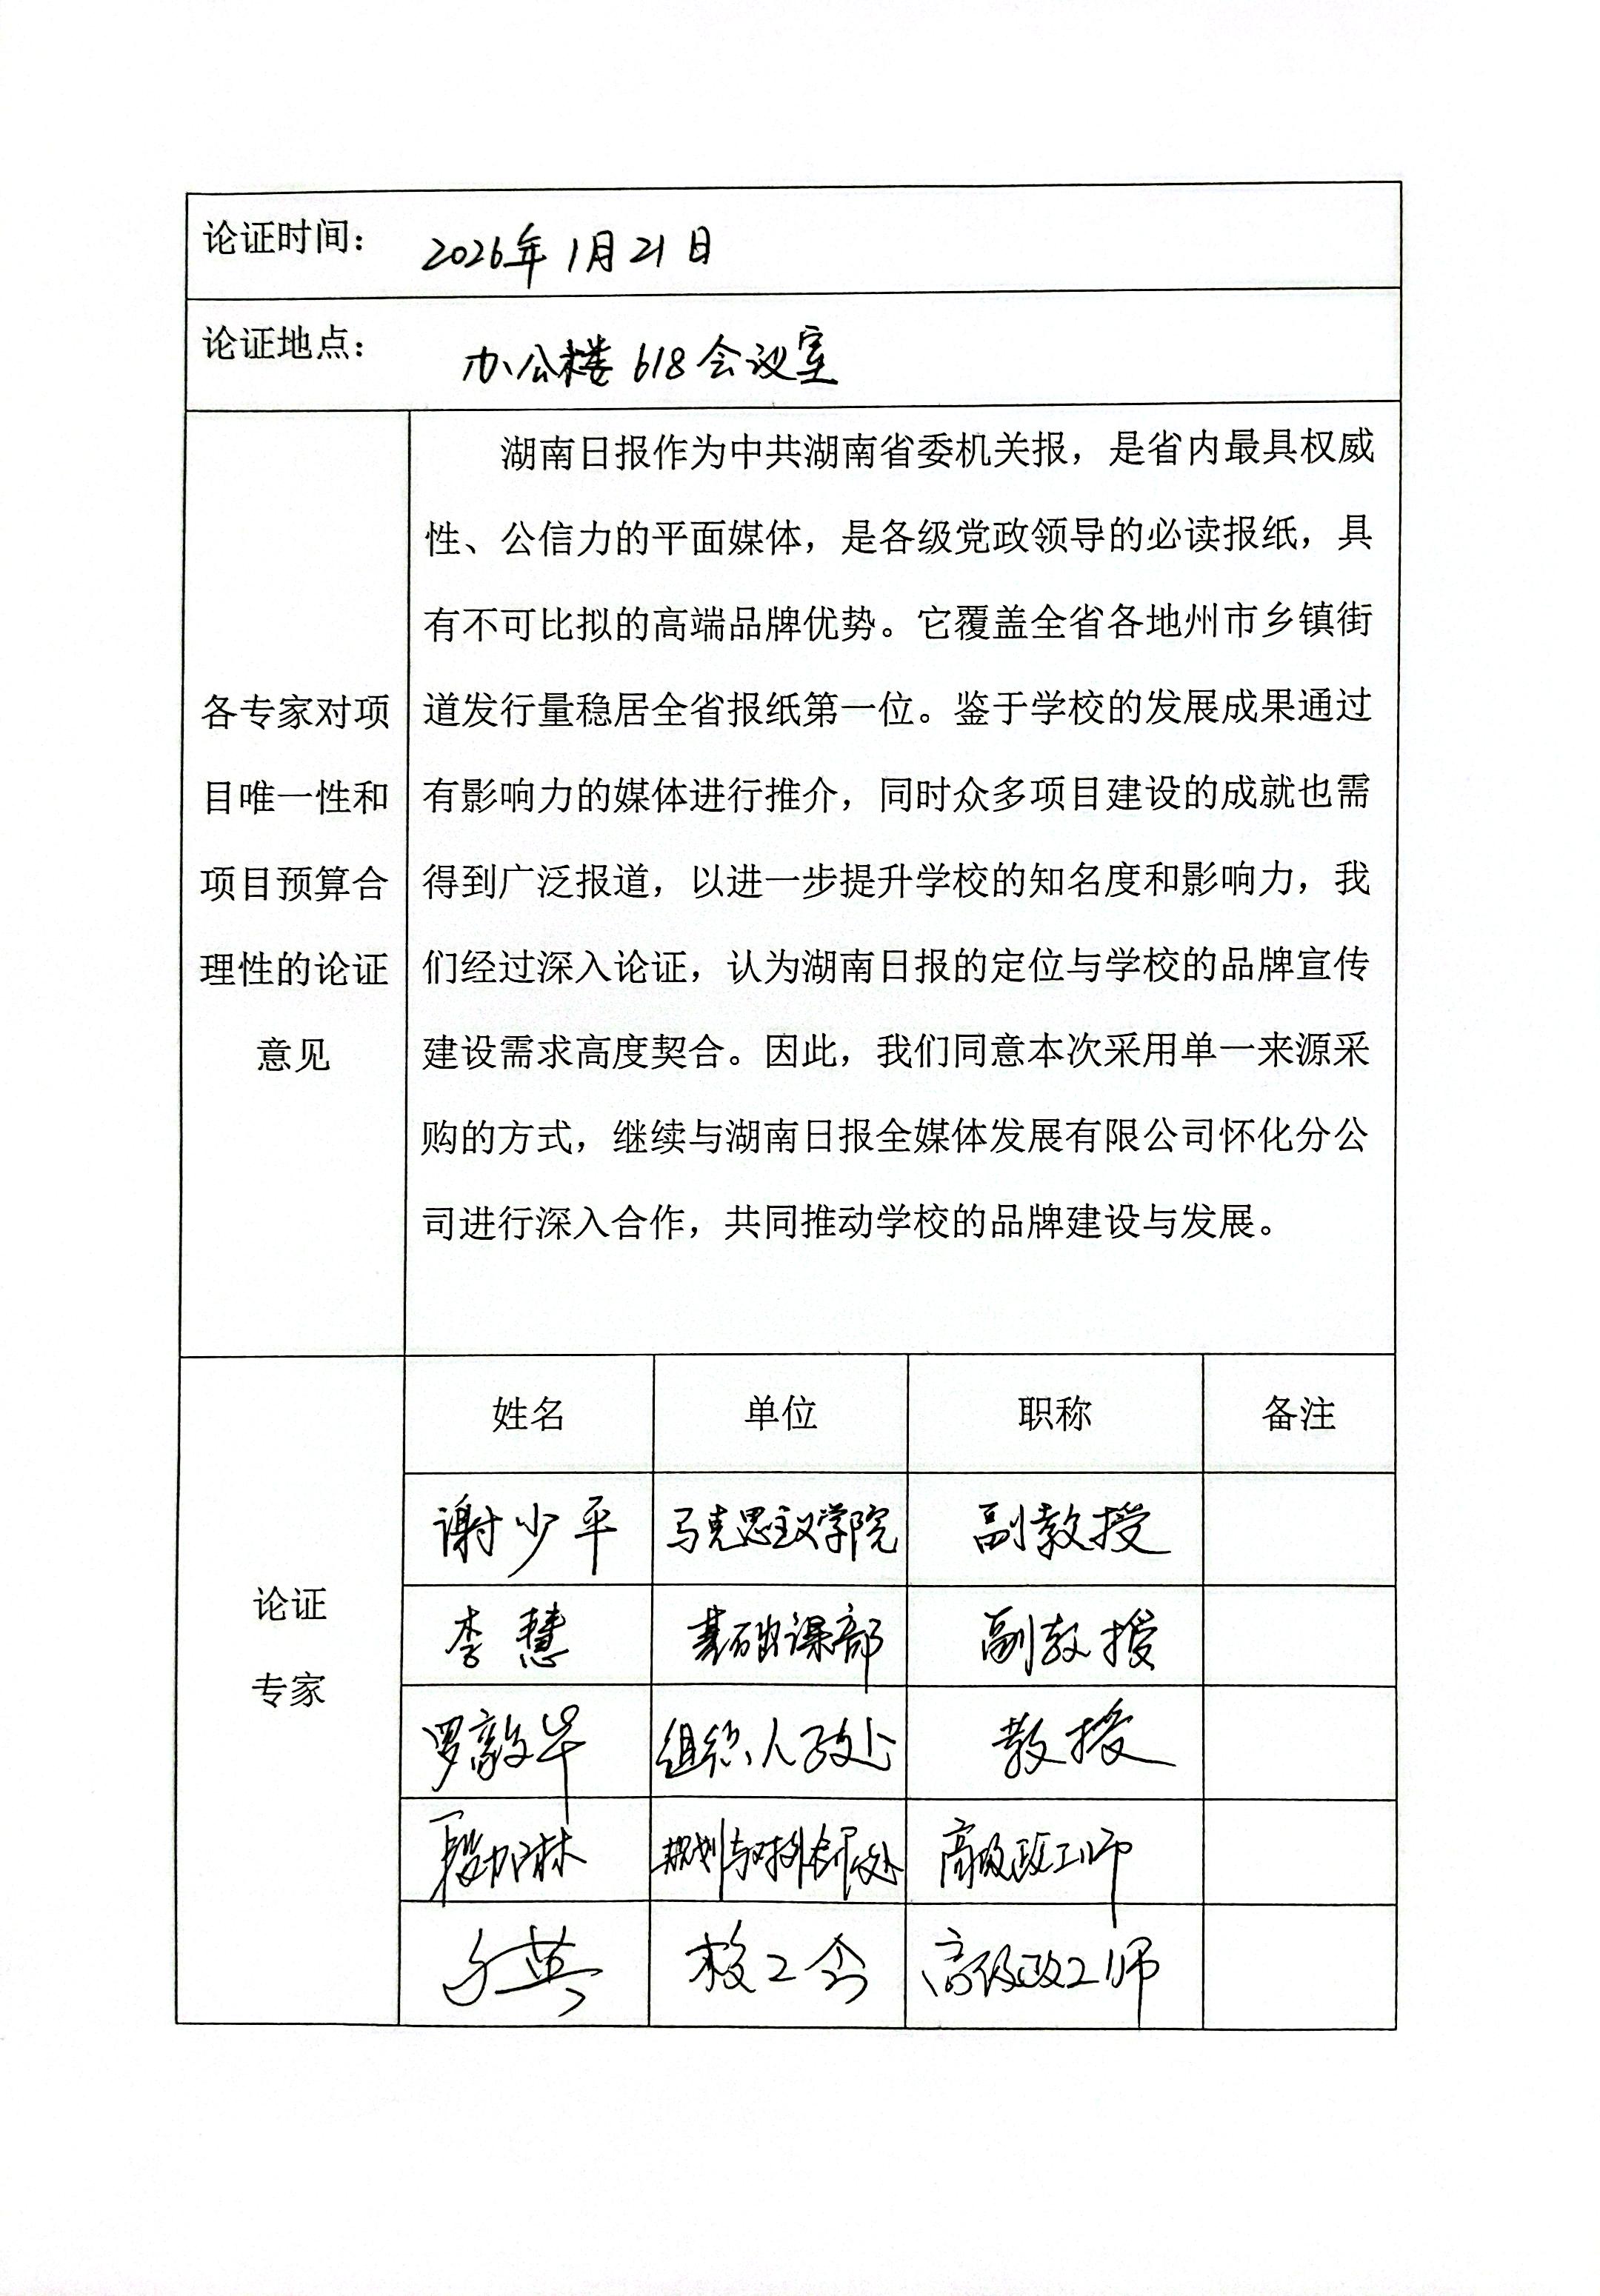 论证时间： 2026年1月21日
论证地点： 办公楼618会议室
各专家对项
目唯一性和
项目预算合
理性的论证
意见
湖南日报作为中共湖南省委机关报，是省内最具权威
性、公信力的平面媒体，是各级党政领导的必读报纸，具
有不可比拟的高端品牌优势。它覆盖全省各地州市乡镇街
道发行量稳居全省报纸第一位。鉴于学校的发展成果通过
有影响力的媒体进行推介，同时众多项目建设的成就也需
得到广泛报道，以进一步提升学校的知名度和影响力，我
们经过深入论证，认为湖南日报的定位与学校的品牌宣传
建设需求高度契合。因此，我们同意本次采用单一来源采
购的方式，继续与湖南日报全媒体发展有限公司怀化分公
司进行深入合作，共同推动学校的品牌建设与发展。
论证
专家
姓名 单位 职称 备注
谢少平 马克思主义学院 副教授
李慧 基础课部 副教授
罗毅华 组织人事处 教授
规划与对外合作处 高级政工师
英 校工会 高级政工师